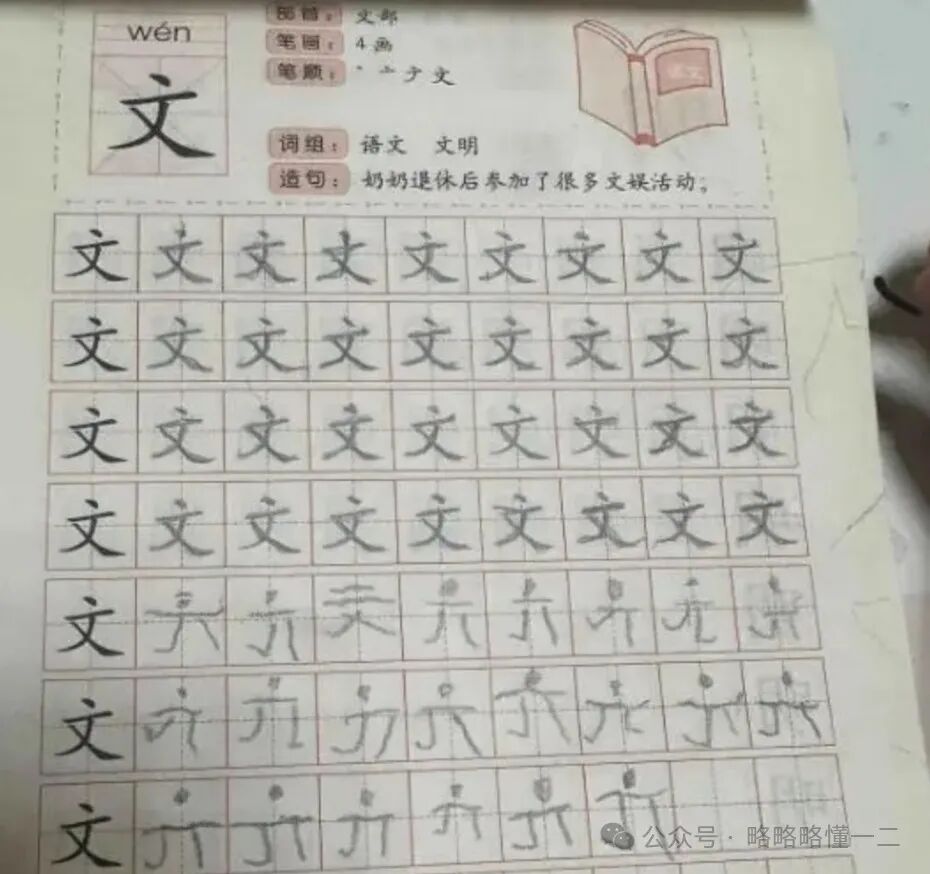 wén
文
部首： 文部
笔画： 4画
笔顺： 丶 亠 ナ 文
词组： 语文 文明
造句： 奶奶退休后参加了很多文娱活动。
语文
文 文 文 文 文 文 文 文 文
文 文 文 文 文 文 文 文 文
文 文 文 文 文 文 文 文 文
文 文 文 文 文 文 文 文 文
文
文
文
公众号 · 略略略懂一二